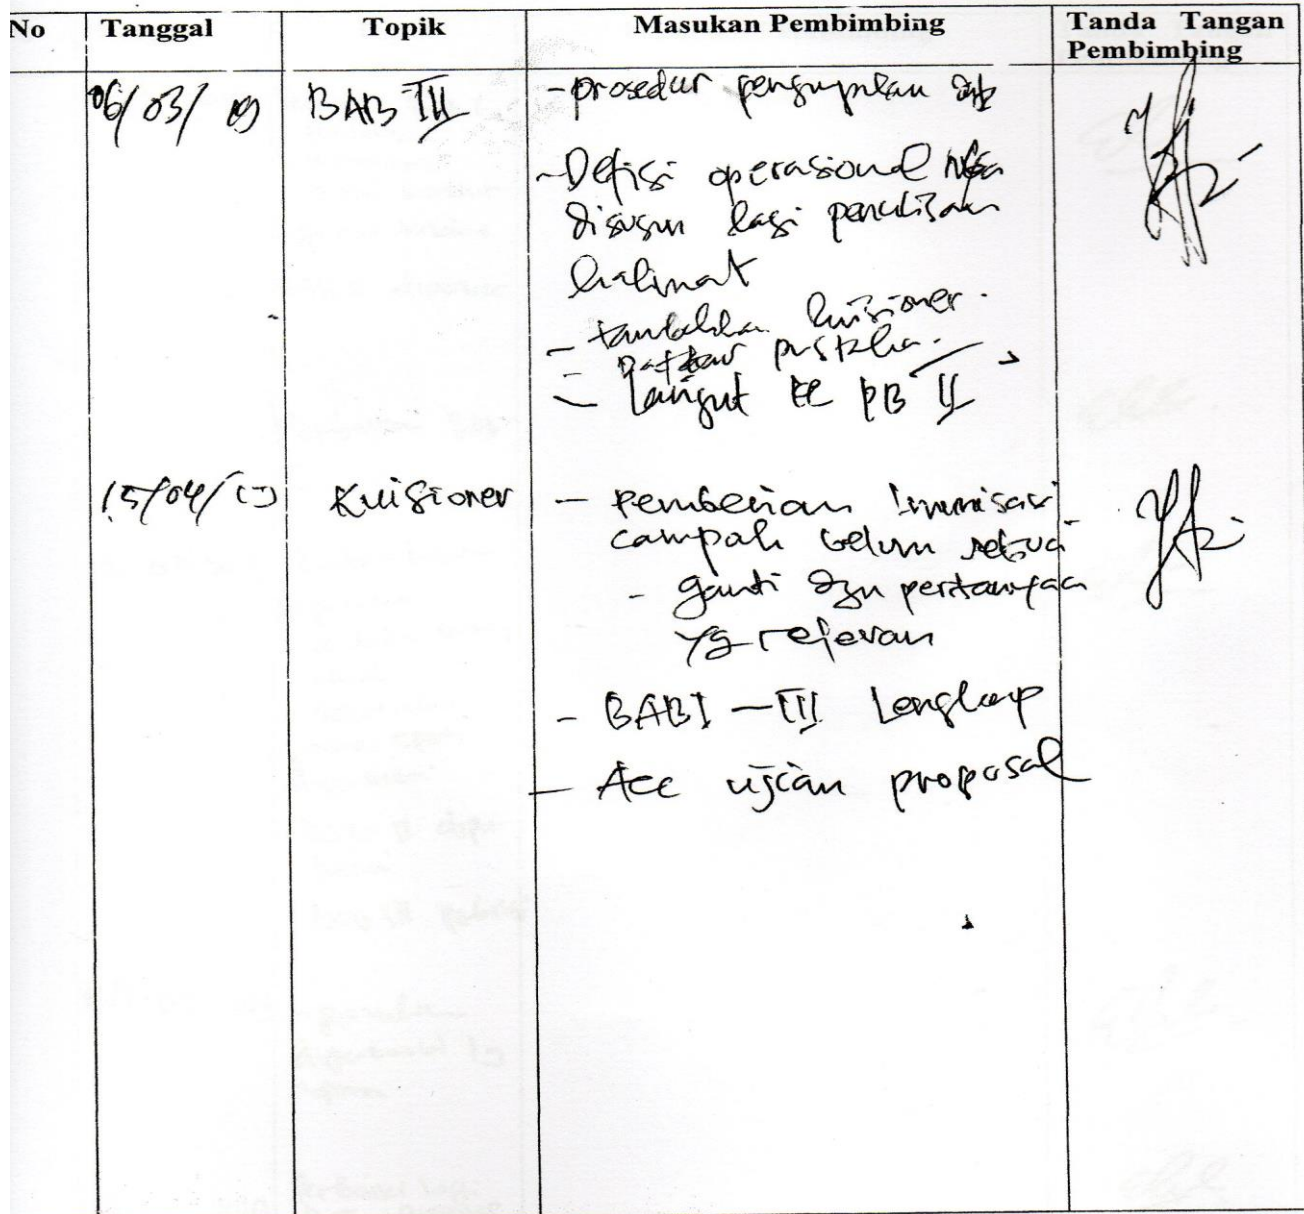 No Tanggal Topik Masukan Pembimbing Tanda Tangan
Pembimbing
06/03/ BAB III - prosedur
- Defisi operasional
disusun lagi penulisan
kalimat
- tambahkan kuisioner.
- Daftar pustaka.
- Langut ke PB II
15/04/ Kuisioner - Pemberian Imunisasi
campak belum sesuai
- ganti dgn pertanyaan
yg relevan
- BAB I - III Lengkap
- Acc ujian proposal